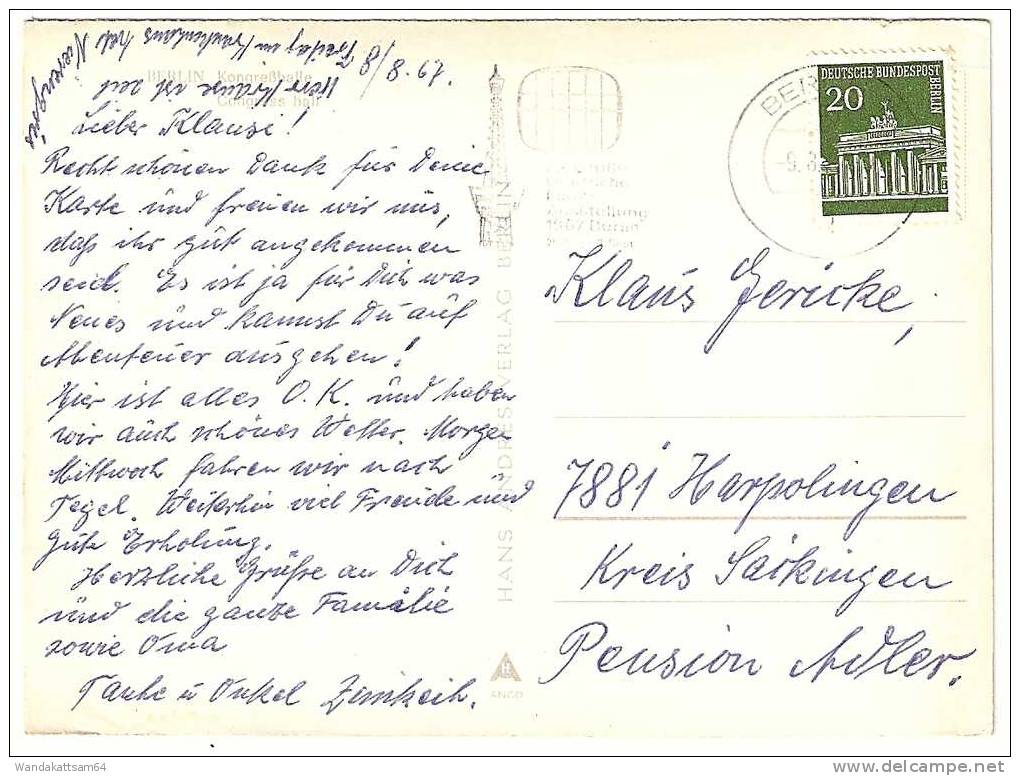 8/8.67.
BERLIN Kongreßhalle
Congress hall
Lieber Klausi!
Recht schönen Dank für Deine
Karte und freuen wir uns,
daß ihr gut angekommen
seid. Es ist ja für Dich was
Neues und kannst Du auf
Abenteuer ausgehen!
Hier ist alles O.K. und haben
wir auch schönes Wetter. Morgen
Mittwoch fahren wir nach
Tegel. Weiterhin viel Freude und
gute Erholung.
Herzliche Grüße an Dich
und die ganze Familie
sowie Oma
Tante u Onkel
Freitag im Krankenhaus hat
HANS ANDRES VERLAG BERLIN
ANCO
ausstellung
1967 Berlin
BER
-9.8.
DEUTSCHE BUNDESPOST
BERLIN
20
Klaus Jericke,
7881 Harpolingen
Kreis Säckingen
Pension Adler.
Wandakattsam64
delcampe.net